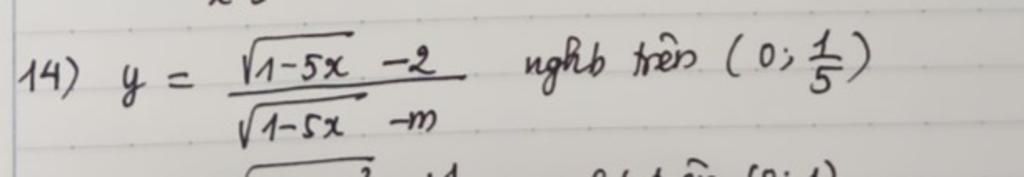 14) y = \frac{\sqrt{1-5x} - 2}{\sqrt{1-5x} - m} nghb trên (0; \frac{1}{5})